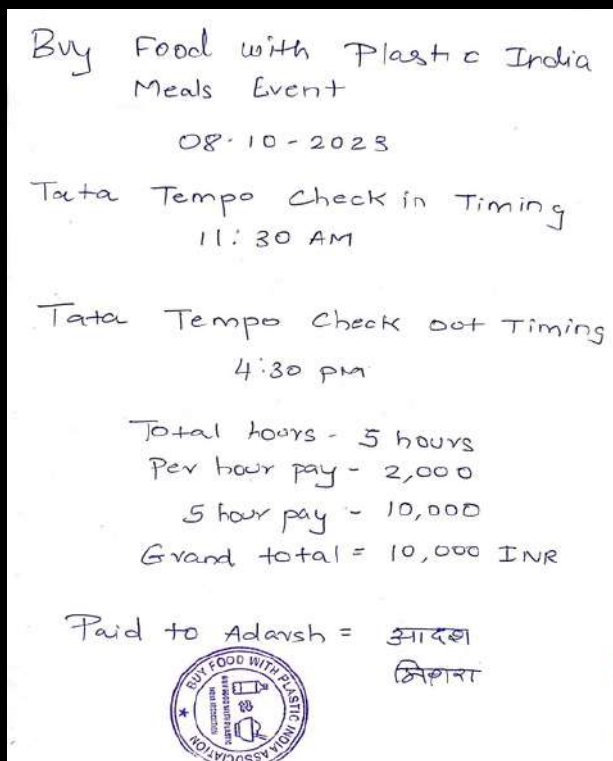 Buy Food with Plastic India
Meals Event
08-10-2023
Tata Tempo Check in Timing
11:30 AM
Tata Tempo Check out Timing
4:30 pm
Total hours - 5 hours
Per hour pay - 2,000
5 hour pay - 10,000
Grand total = 10,000 INR
Paid to Adarsh = आदश
BUY FOOD WITH PLASTIC INDIA ASSOCIATION